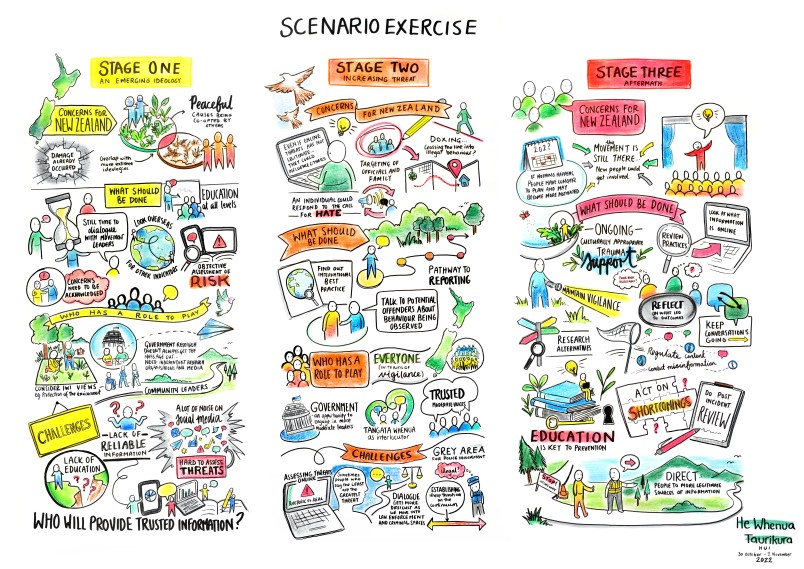 SCENARIO EXERCISE
STAGE ONE
AN EMERGING IDEOLOGY
CONCERNS FOR
NEW ZEALAND
Peaceful
CAUSES BEING
CO-OPTED BY
OTHERS
DAMAGE
ALREADY
OCCURED
Overlap with
more extreme
ideologies
WHAT SHOULD
BE DONE
EDUCATION
at all levels
STILL TIME to
dialogue
WITH MOVEMENT
LEADERS
LOOK OVERSEAS
FOR OTHER INDICATORS
OBJECTIVE
ASSESSMENT OF
RISK
CONCERNS
NEED TO BE
ACKNOWLEDGED
WHO HAS A ROLE TO PLAY
GOVERNMENT
DOESN'T ALWAYS GET THE
MESSAGE OUT
NEED INDEPENDENT
ORGANISATIONS AND MEDIA
CONSIDER IWI VIEWS
Protection of the environment
COMMUNITY LEADERS
CHALLENGES
LACK OF
RELIABLE
INFORMATION
A LOT OF NOISE ON
Social media
HARD TO ASSESS
THREATS
LACK OF
EDUCATION
WHO WILL PROVIDE TRUSTED INFORMATION?
STAGE TWO
INCREASING THREAT
CONCERNS FOR NEW ZEALAND
EVEN IF ONLINE
THREATS ARE NOT
LEGITIMATE -
THEY COULD
INFLUENCE OTHERS
DOXING
Crossing the line into
illegal behaviour?
TARGETING OF
OFFICIALS AND
FAMILY
AN INDIVIDUAL COULD
RESPOND TO THE CALL
FOR HATE
WHAT SHOULD
BE DONE
FIND OUT
INTERNATIONAL
BEST
PRACTICE
PATHWAY TO
REPORTING
TALK TO POTENTIAL
OFFENDERS ABOUT
BEHAVIOUR BEING
OBSERVED
WHO HAS A
ROLE TO PLAY
EVERYONE
(IN TERMS OF
vigilance)
GOVERNMENT
an opportunity to
engage in online
moderate leaders
TANGATA WHENUA
as interlocutor
TRUSTED
MODERATE VOICES
CHALLENGES
ASSESSING THREATS
ONLINE
RHETORIC VS REAL
Sometimes
people who
say the least
are the
greatest
threat
DIALOGUE
GETS MORE
DIFFICULT AS
WE MOVE INTO
LAW ENFORCEMENT
AND CRIMINAL SPACES
GREY AREA
FOR POLICE INVOLVEMENT
illegal?
ESTABLISHING
on the
continuum
STAGE THREE
AFTERMATH
CONCERNS FOR
NEW ZEALAND
202?
IF NOTHING HAPPENS,
PEOPLE HAVE LONGER
TO PLAN AND MAY
BECOME MORE MOTIVATED
the
MOVEMENT
IS STILL
THERE
New people could
get involved
WHAT SHOULD BE DONE
ONGOING
CULTURALLY APPROPRIATE
TRAUMA
support
REVIEW
PRACTICES
LOOK AT WHAT
INFORMATION
IS ONLINE
MAINTAIN VIGILANCE
REFLECT
ON WHAT LED
TO OUTCOMES
KEEP
CONVERSATIONS
GOING
RESEARCH
ALTERNATIVES
Regulate content
combat misinformation
ACT ON
SHORTCOMINGS
DO POST
INCIDENT
REVIEW
EDUCATION
IS KEY TO PREVENTION
DIRECT
PEOPLE TO MORE LEGITIMATE
SOURCES OF INFORMATION
He Whenua
Taurikura
HUI
30 October - 2 November
2022